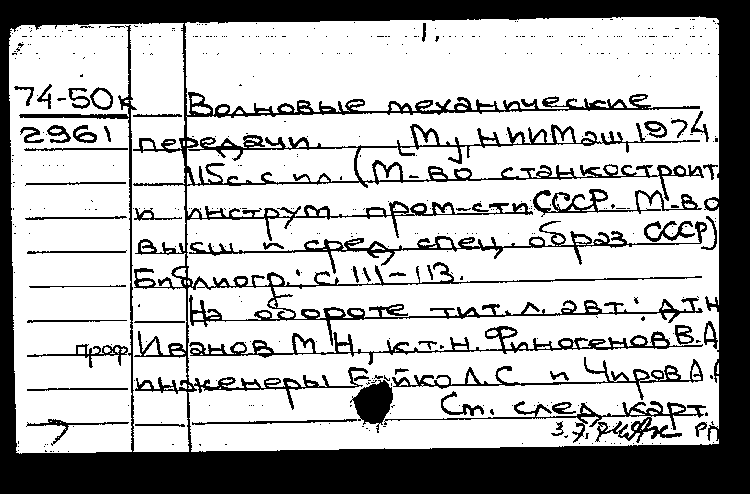 1.
74-50к Волновые механические
2961 передачи. [М.], НИИМаш, 1974.
115с. с ил. (М-во станкостроит.
и инструм. пром-сти СССР. М-во
высш. и сред. спец. образ. СССР)
Библиогр.: с. 111-113.
На обороте тит. л. авт.: д.т.н.
проф. Иванов М.Н., к.т.н. Финогенов В.А.
инженеры Бойко Л.С. и Чиров А.А.
См. след. карт.